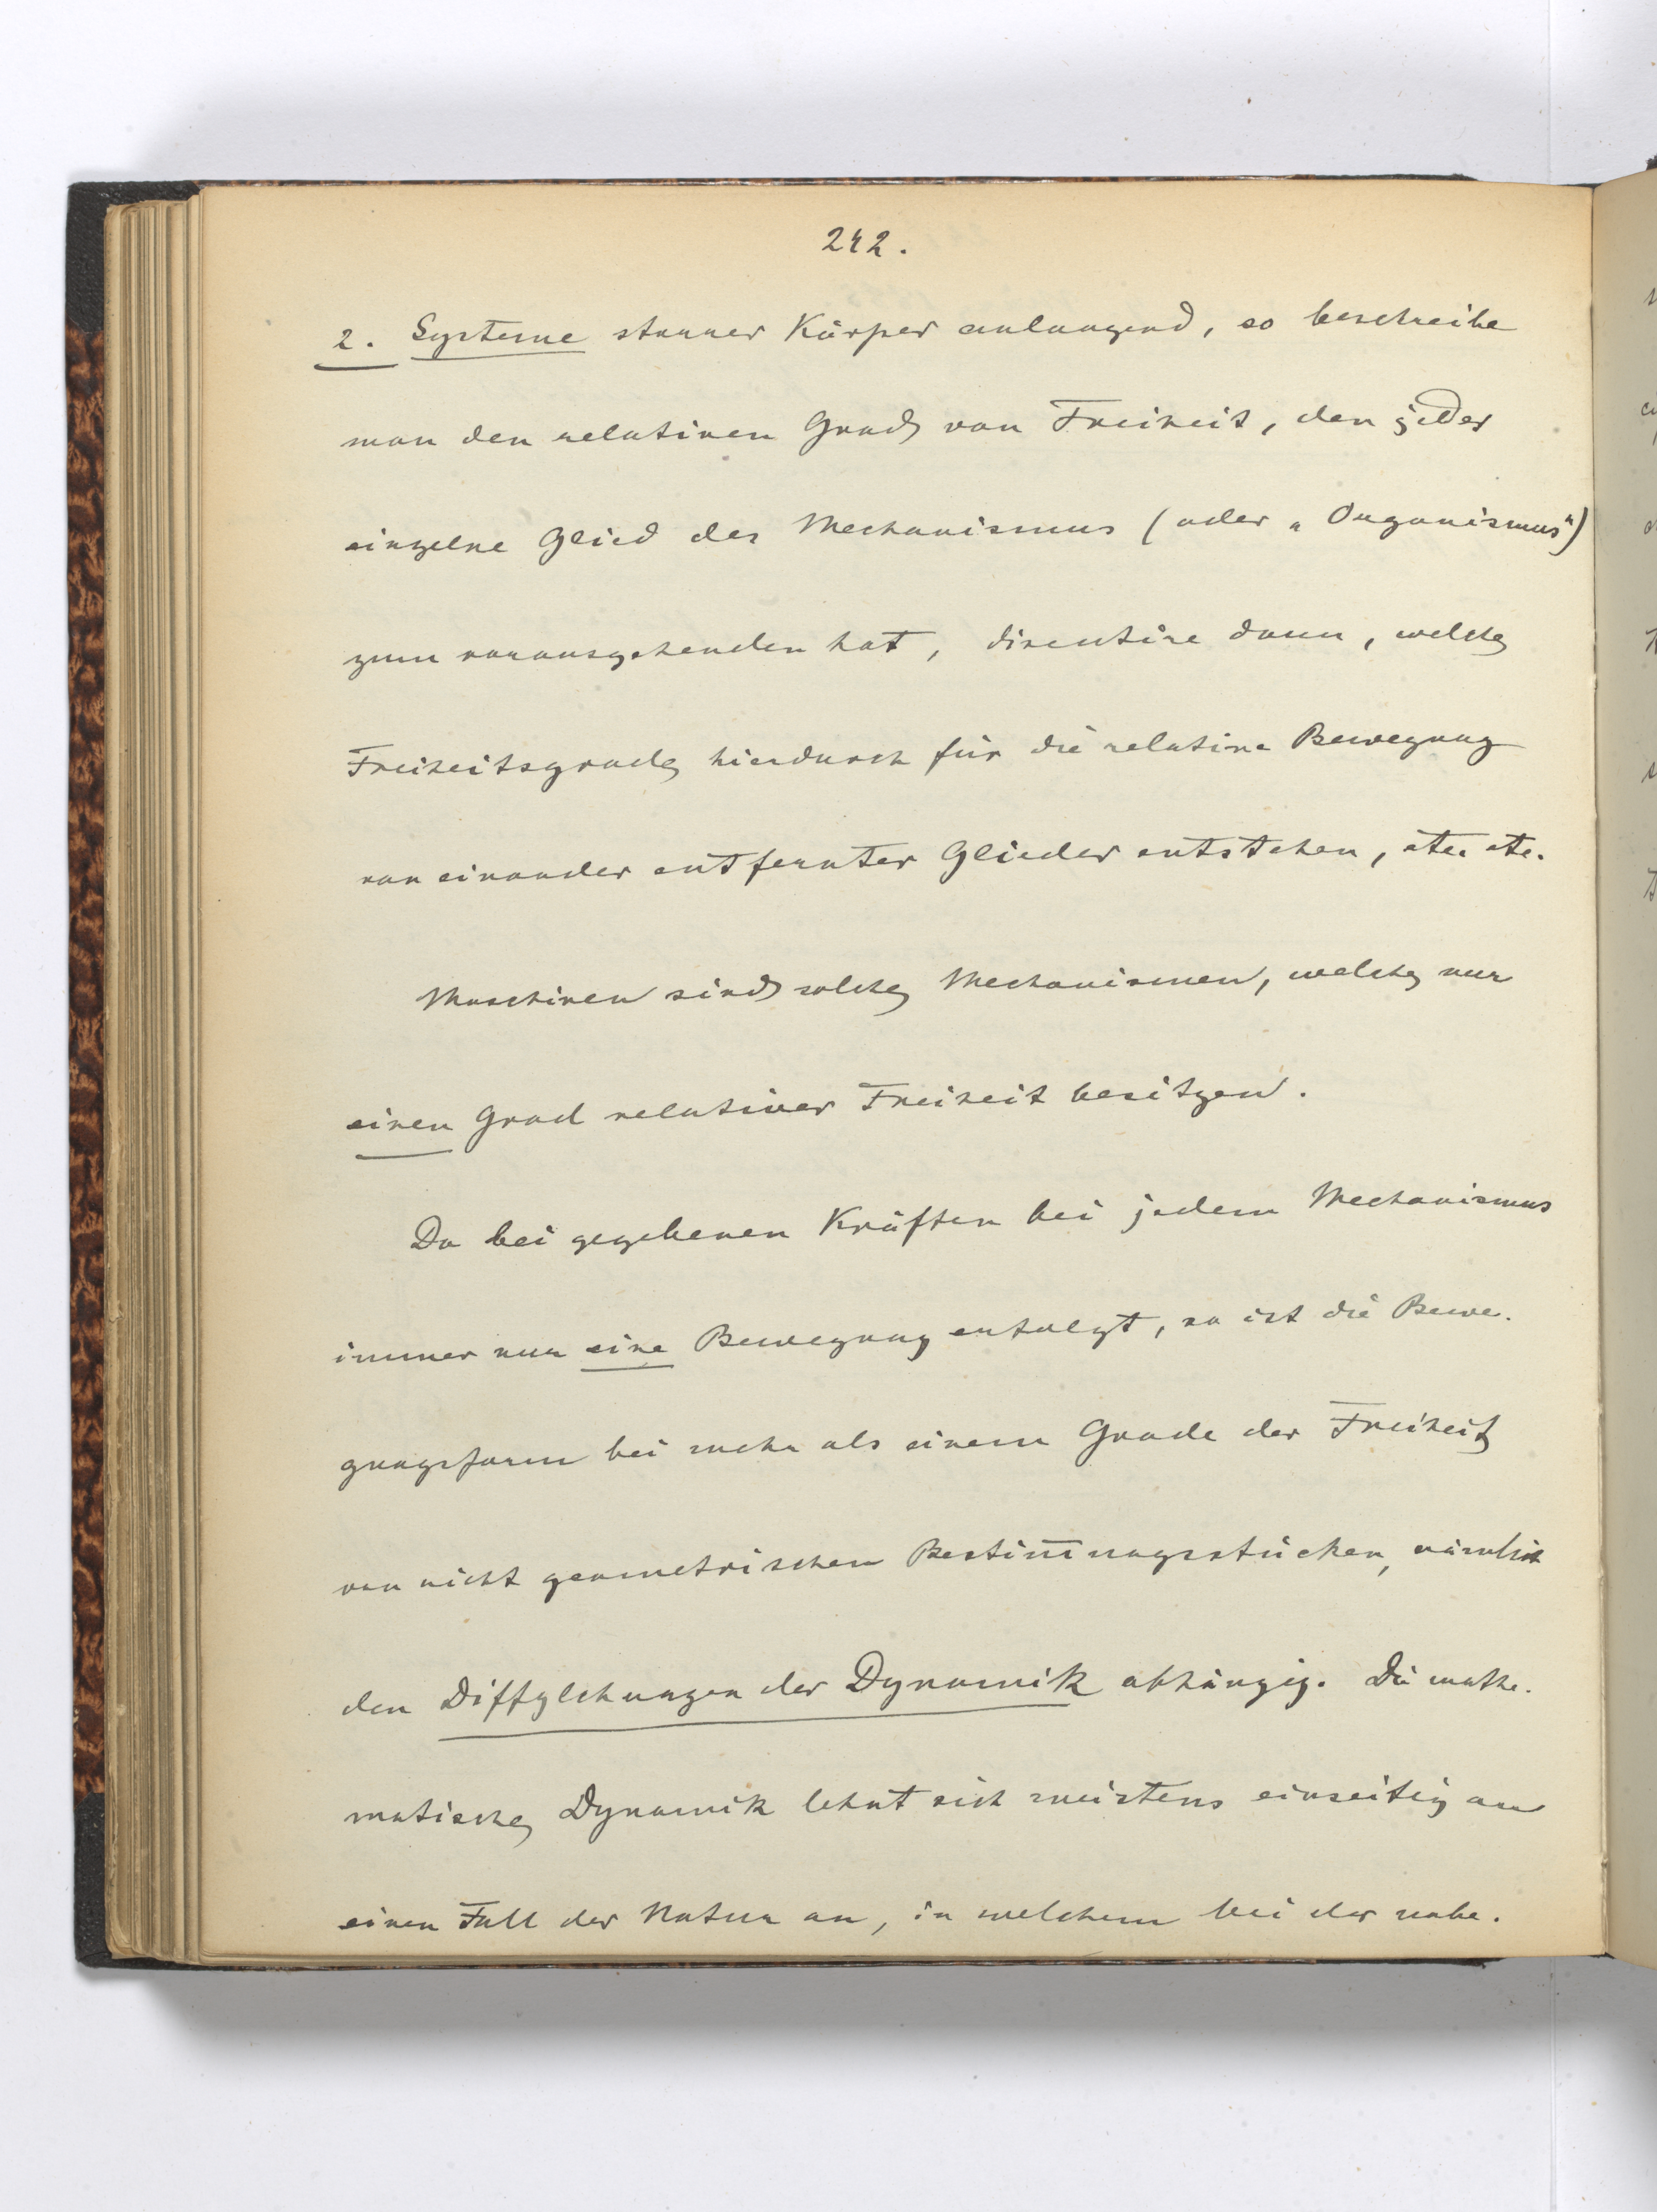 242.
2. Systeme starrer Körper anlangend, so beschreibe
man den relativen Grad von Freiheit, den jedes
einzelne Glied des Mechanismus (oder „Organismus“)
zum vorausgehenden hat, discutire dann, welche
Freiheitsgrade hierdurch für die relative Bewegung
von einander entfernter Glieder entstehen, etc. etc.
Maschinen sind solche Mechanismen, welche nur
einen Grad relativer Freiheit besitzen.
Da bei gegebenen Kräften bei jedem Mechanismus
immer nur eine Bewegung erfolgt, so ist die Bewe-
gungsform bei mehr als einem Grade der Freiheit
von nicht geometrischen Bestim̅ungsstücken, nämlich
den Diffglchungen der Dynamik abhängig. Die mathe-
matische Dynamik lehnt sich meistens einseitig an
einen Fall der Natur an, in welchem bei der nahe-